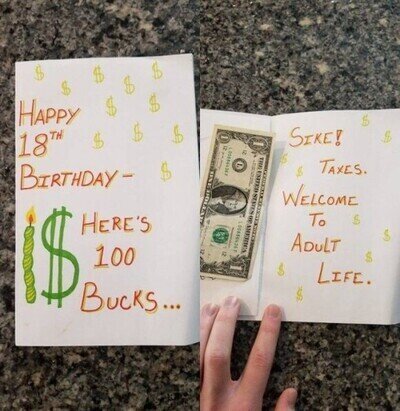 HAPPY
18TH
BIRTHDAY-
HERE'S
100
BUCKS...
SIKE!
TAXES.
WELCOME
TO
ADULT
LIFE.